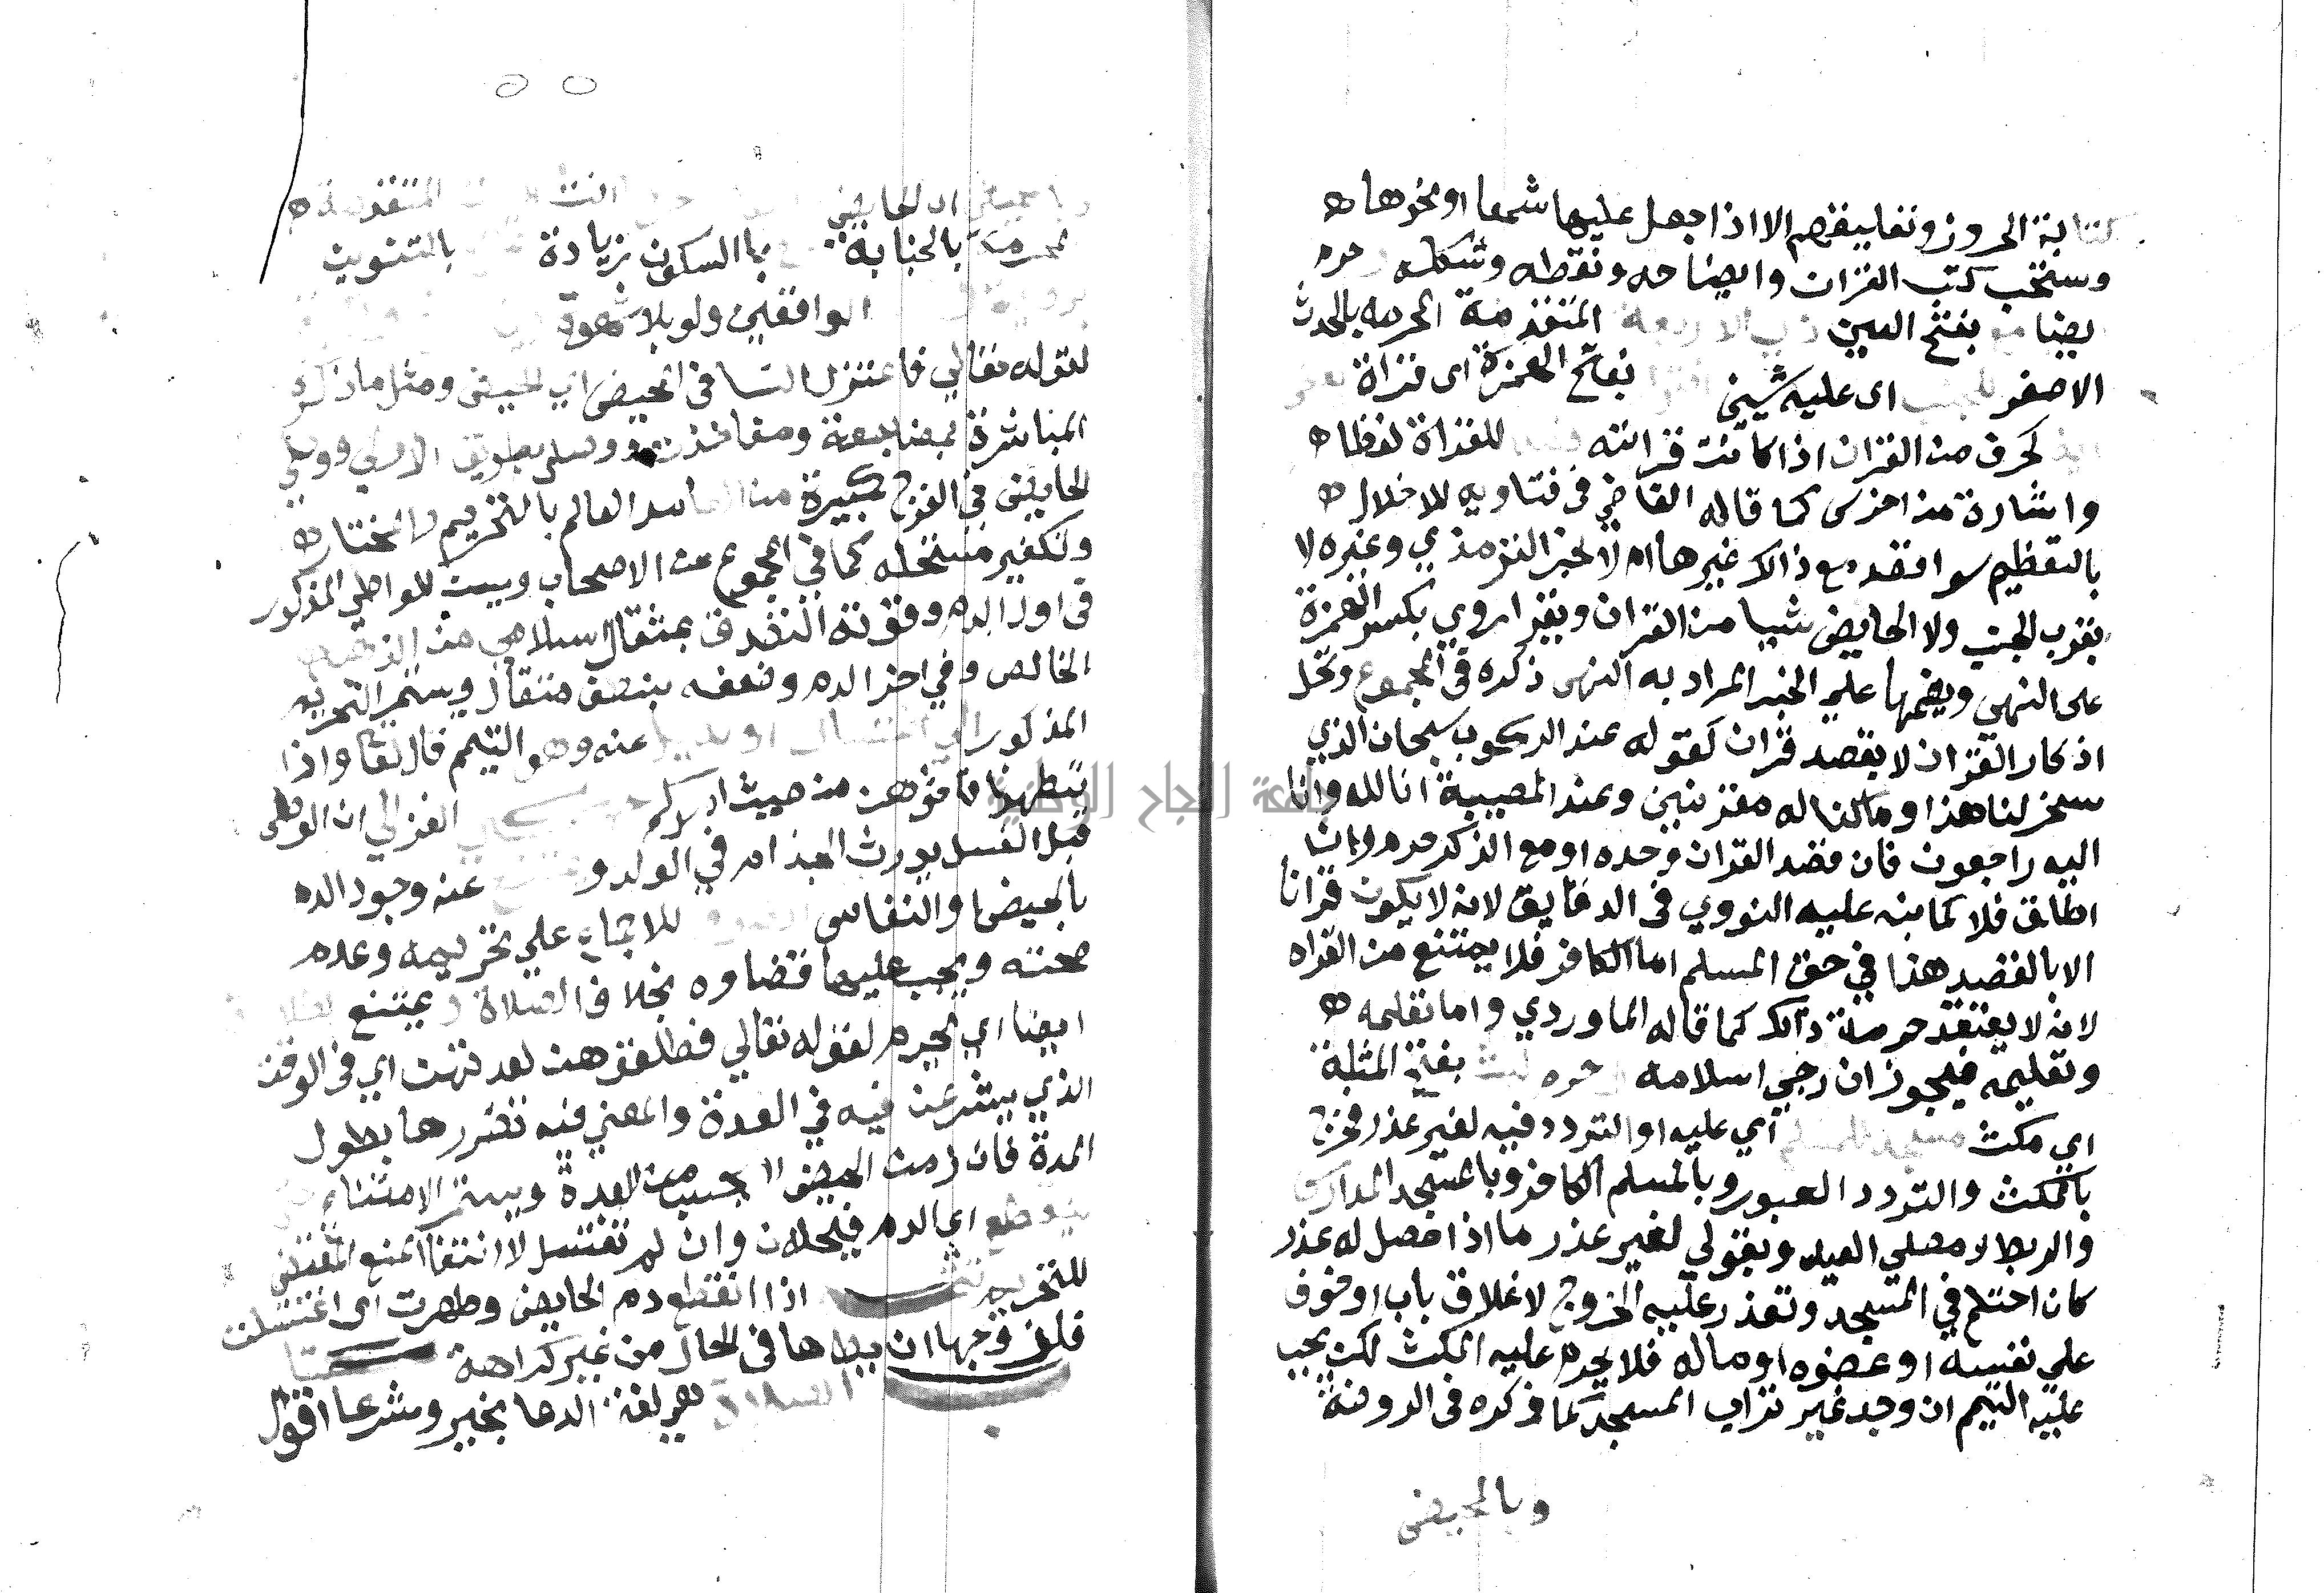 كتابة الحروز ونفاببغضهم الا اذا جعل عليها شمعا او نحوها ه
وستحب كتب القران وايضاحه ونقطه وشكله حرم
ايضا بفتح العين الاربعة المتقدمة المحرمه بالحدث
الاصغر للجنب اى عليه شيئى بفتح الهمزة اى قراة
كحرف من القران اذا كانت قرائته للقراة لفظا ه
واشارة من اخرس كما قاله القاضي في فتاويه للاخلال ه
بالتعظيم سوا قصد مع ذالك غيرها ام لا لخبر الترمذي وغيره لا
يقرب الجنب ولا الحايض شيا من القران ويقرا روي بكسر الهمزة
على النهي وبضمها علي الخبر المراد به النهى ذكره فى المجموع وتحل
اذكار القران لا بقصد قران كقوله عند الركوب سبحان الذي
سخر لنا هذا وما كنا له مقرنين وعند المصيبة انا لله وانا
اليه راجعون فان قصد القران وحده او مع الذكر حرم وان
اطلق فلا كما نبه عليه النووي فى الدقايق لانه لا يكون قرانا
الا بالقصد هذا في حق المسلم اما الكافر فلا يمتنع من القراه
لانه لا يعتقد حرمة ذالك كما قاله الماوردي واما تعلمه ه
وتعليمه فيجوز ان رجي اسلامه حرم لبث بفتح المثلثة
اي مكث مسجد المسلم اي عليه او التردد فيه لغير عذر فخرج
بالمكث والتردد العبور وبالمسلم الكافر وبالمسجد المدارس
والربط لا مصلي العيد وبقولي لغير عذر ما اذا حصل له عذر
كان احتلم في المسجد وتعذر عليه الخروج لاغلاق باب او خوف
علي نفسه او عضوه او ماله فلا يحرم عليه المكث لكن يجب
عليه التيمم ان وجد غير تراب المسجد كما ذكره فى الروضة
وبالحيض
اى الحايض المتقدمة ه
المحرمة بالجنابة بالسكون زيادة بالتنوين
الواقفين ولو بلا شهوة
لقوله تعالي فاعتزلوا النسا فى المحيض اي الحيض ومثل ما ذكره
المباشرة بطريق الاولي ووطي
الحايض في الفرج كبيرة من العامد العالم بالتحريم المختار ه
ونكفير مستحله كما في المجموع عن الاصحاب ويسن للواطي المذكور
فى اول الدم وقوته التصدق بمثقال اسلامي من الذهب
الخالص وفي اخر الدم وضعفه بنصف مثقال ويستمر التحريم
المذكور الي اغتسال او بديل عنه وهو التيمم قال تعا واذا
تطهرن فاتوهن من حيث امركم الغزالي ان الوطى
قبل الغسل يورث الجذام في الولد عنه وجود الدم
بالحيض والنفاس للاجماع علي تحريمه وعدم
صحته ويجب عليها قضاوه بخلاف الصلاة ويمتنع
ايضا اي يحرم لقوله تعالي فطلقوهن لعدتهن اي فى الوقت
الذي يشرعن فيه في العدة والمعني فيه تضررها بطول
المدة فان زمن الحيض لا يحسب من العدة ويستمر الامتناع
ينقطع اى الدم فيحلان وان لم تغتسل لانتفا المنع المقتضي
للتحريم اذا انقطع دم الحايض وطهرت اى اغتسلت
فلزوجها ان يطاها فى الحال من غير كراهة
الصلاة هى لغة الدعا بخير وشرعا اقوال